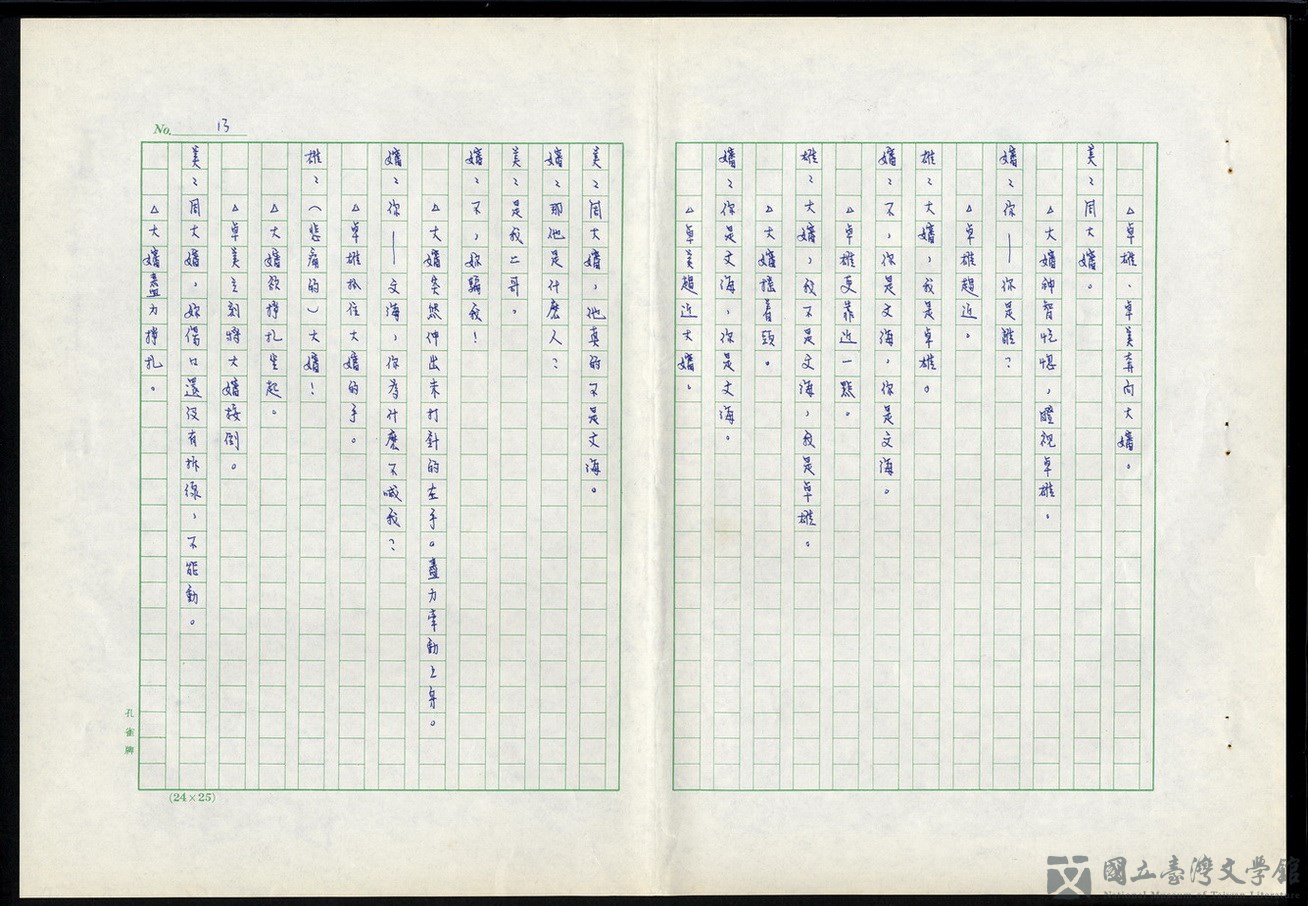 △卓雄、卓美奔向大嬸。
美：周大嬸。
△大嬸神智恍惚，瞪視卓雄。
嬸：你——你是誰？
△卓雄趨近。
雄：大嬸，我是卓雄。
嬸：不，你是文海，你是文海。
△卓雄更靠近一點。
雄：大嬸，我不是文海，我是卓雄。
△大嬸搖着頭。
嬸：你是文海，你是文海。
△卓美趨近大嬸。
美：周大嬸，他真的不是文海。
嬸：那他是什麼人？
美：是我二哥。
嬸：不，妳騙我！
△大嬸突然伸出未打針的左手。盡力牽動上身。
嬸：你——文海，你為什麼不喊我？
△卓雄抓住大嬸的手。
雄：（悲痛的）大嬸！
△大嬸欲掙扎坐起。
△卓美立刻將大嬸按倒。
美：周大嬸，妳傷口還没有拆線，不能動。
△大嬸盡力掙扎。
No. 13
孔雀牌
(24×25)
國立臺灣文學館
National Museum of Taiwan Literature